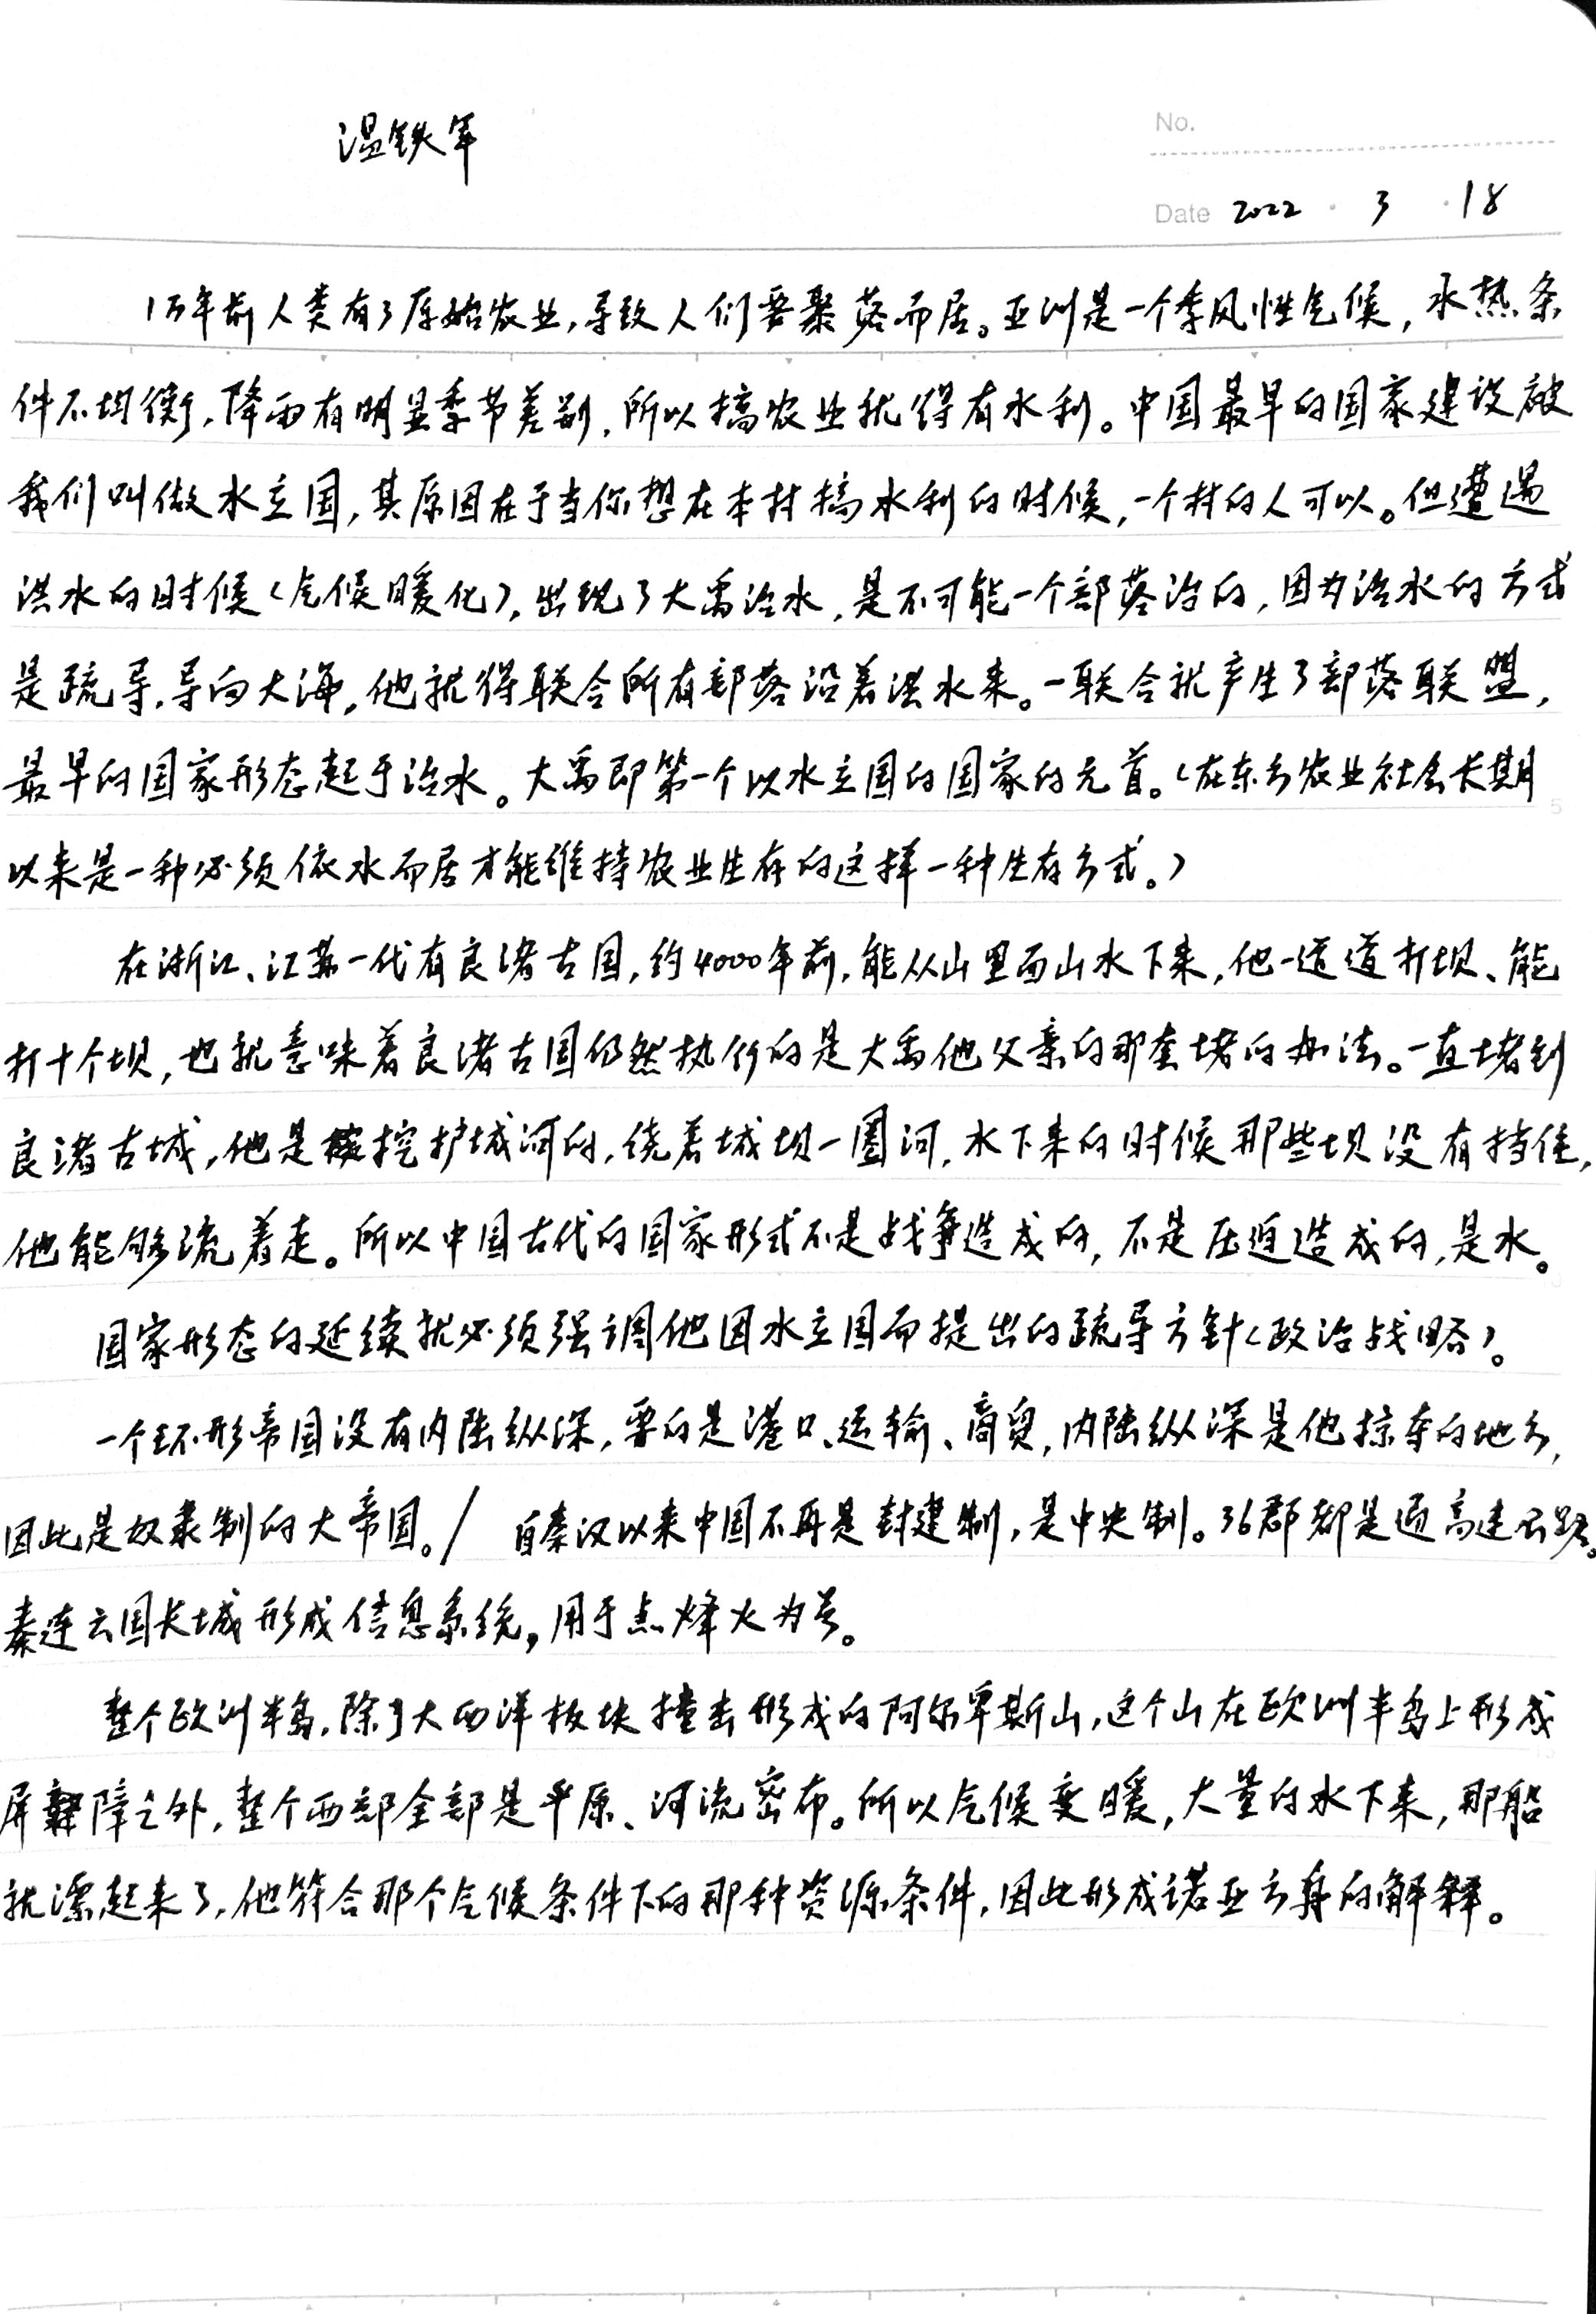 温铁军
No.
Date 2022 · 3 · 18
1万年前人类有了原始农业,导致人们要聚落而居。亚洲是一个季风性气候,水热条
件不均衡,降雨有明显季节差别,所以搞农业就得有水利。中国最早的国家建设被
我们叫做水立国,其原因在于当你想在本村搞水利的时候,一个村的人可以。但遭遇
洪水的时候(气候暖化),出现了大禹治水,是不可能一个部落治的,因为治水的方式
是疏导,导向大海,他就得联合所有部落沿着洪水来。一联合就产生了部落联盟,
最早的国家形态起于治水。大禹即第一个以水立国的国家的元首。(在东方农业社会长期
以来是一种必须依水而居才能维持农业生存的这样一种生存方式。)
在浙江、江苏一代有良渚古国,约4000年前,能从山里面山水下来,他一道道打坝、能
打十个坝,也就意味着良渚古国仍然执行的是大禹他父亲的那套堵的办法。一直堵到
良渚古城,他是挖护城河的,绕着城坝一圈河,水下来的时候那些坝没有挡住,
他能够流着走。所以中国古代的国家形式不是战争造成的,不是压迫造成的,是水。
国家形态的延续就必须强调他因水立国而提出的疏导方针(政治战略)。
一个环形帝国没有内陆纵深,要的是港口、运输、商贸,内陆纵深是他掠夺的地方,
因此是奴隶制的大帝国。/ 自秦汉以来中国不再是封建制,是中央制。36郡都是通高速公路。
秦连六国长城形成信息系统,用于点烽火为号。
整个欧洲半岛,除了大西洋板块撞击形成的阿尔卑斯山,这个山在欧洲半岛上形成
屏障之外,整个西部全部是平原、河流密布。所以气候变暖,大量的水下来,那船
就漂起来了,他符合那个气候条件下的那种资源条件,因此形成诺亚方舟的解释。